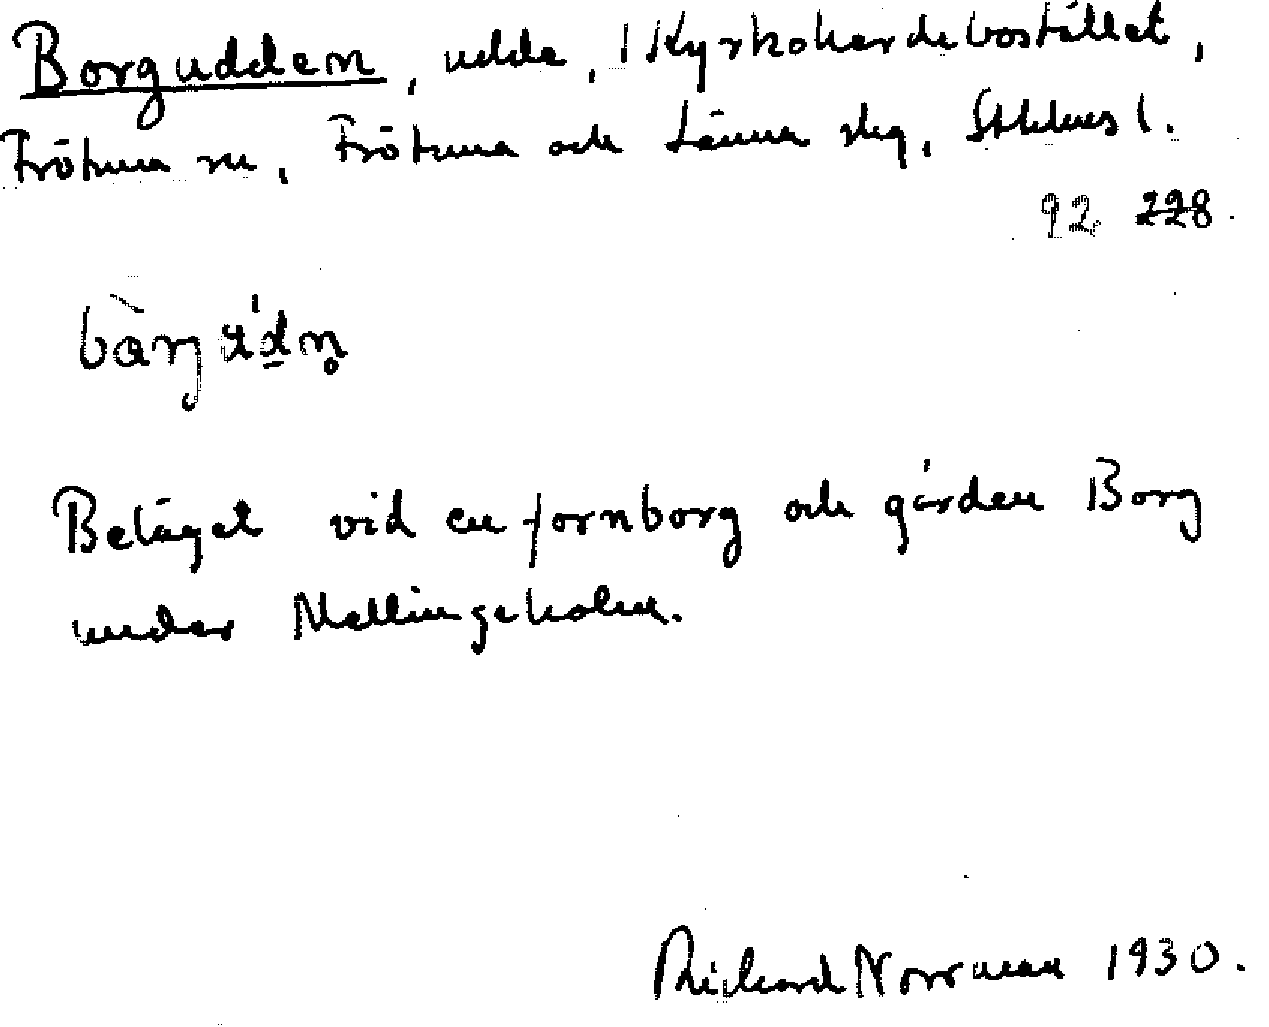 Borgudden, udde, i Kyrkoherdebostället,
Frötuna sn, Frötuna och Länna skg, Sthlms l.
92 228.
Beläget vid en fornborg och gården Borg
under Mellingeholm.
Rickard Norrman 1930.